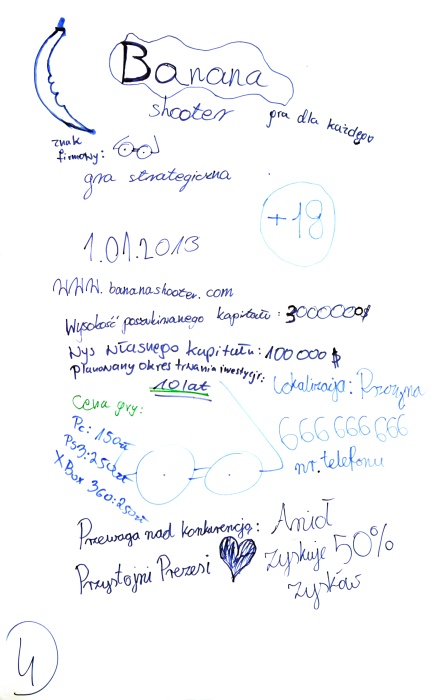 Banana
shooter
gra dla każdego
znak
firmowy:
gra strategiczna
+18
1.01.2013
WWW.bananashooter.com
Wysokość poszukiwanego kapitału: 3000000$
Wys własnego kapitału: 100 000 $
planowany okres trwania inwestycji:
10 lat
Lokalizacja:
Cena gry:
Pc: 150zł
PS3: 250zł
XBox 360: 250zł
666 666 666
nr. telefonu
Przewaga nad konkurencją:
Przystojni Prezesi
Anioł
Zyskuje 50%
zysków
4